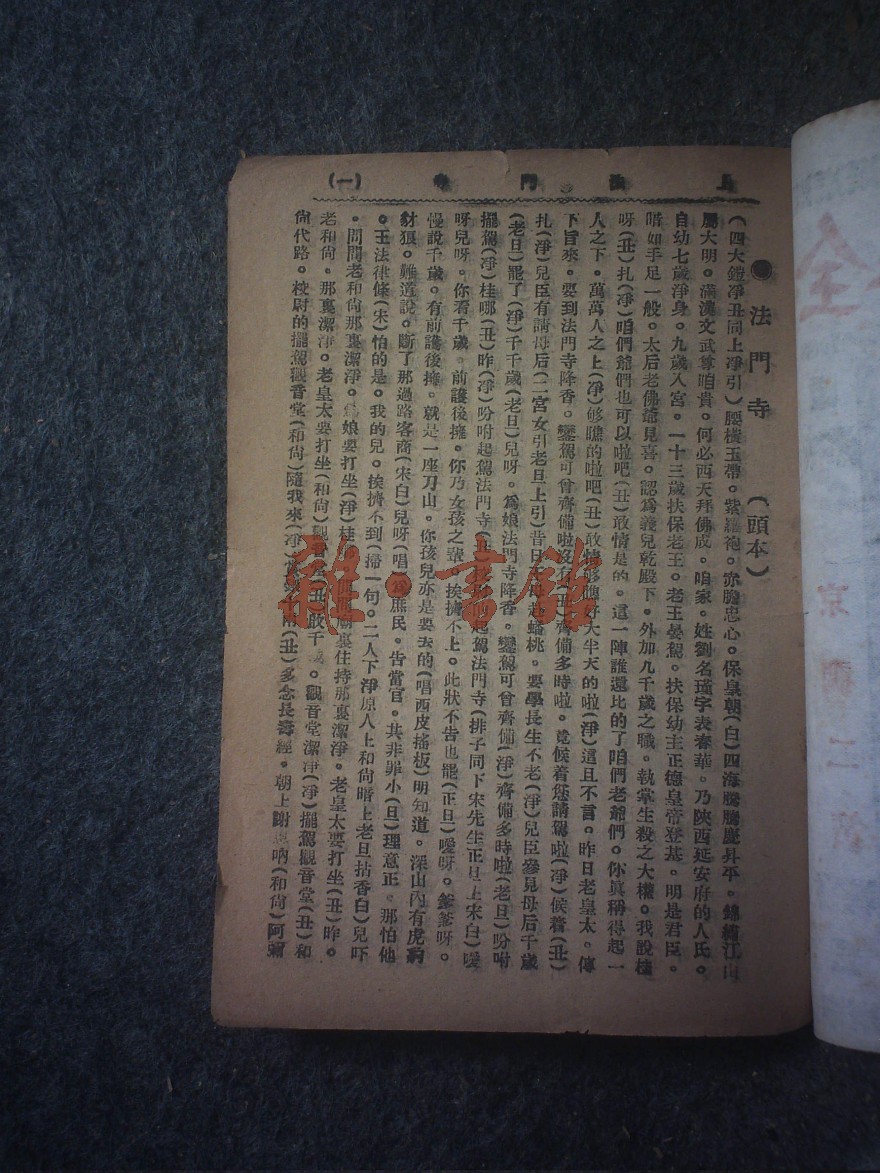 上法門寺 (一)
●法門寺 (頭本)
(四大鎧淨丑同上淨引)腰橫玉帶。紫羅袍。赤膽忠心。保皇朝(白)四海騰騰慶昇平。錦繡江山
屬大明。滿漢文武尊咱貴。何必西天拜佛成。咱家。姓劉名瑾字表春華。乃陝西延安府的人氏。
自幼七歲淨身。九歲入宮。一十三歲扶保老王。老王晏駕。扶保幼主正德皇帝登基。明是君臣。
暗如手足一般。太后老佛爺見喜。認爲義兒乾殿下。外加九千歲之職。執掌生殺之大權。我說桂
呀(丑)扎(淨)咱們爺們也可以啦吧(丑)敢情是的。這一陣誰還比的了咱們老爺們。你眞稱得起一
人之下。萬萬人之上(淨)够瞧的啦吧(丑)敢情够瞧好大半天的啦(淨)這且不言。昨日老皇太。傳
下旨來。要到法門寺降香。鑾駕可曾齊備啦沒有(丑)齊備多時啦。竟候着您請駕啦(淨)候着(丑)
扎(淨)兒臣有請母后(二宮女引老旦上引)昔日王母赴蟠桃。要學長生不老(淨)兒臣參見母后千歲
(老旦)罷了(淨)千千歲(老旦)兒呀。爲娘法門寺降香。鑾駕可曾齊備(淨)齊備多時啦(老旦)吩咐
擺駕(淨)桂哪(丑)咋(淨)吩咐起駕法門寺(丑)起駕法門寺(排子同下宋先生正旦上宋白)噯
呀兒呀。你看千歲。前護後擁。你乃女孩之輩。挨擠不上。此狀不告也罷(正旦)噯呀。爹爹呀。
慢說千歲。有前護後擁。就是一座刀山。你孩兒亦是要去的(唱西皮搖板)明知道。深山內有虎豹
豺狼。難道說。斷了那過路客商(宋白)兒呀(唱)爲庶民。告當官。共非罪小(旦)理意正。那怕他
。王法律條(宋)怕的是。我的兒。挨擠不到(掃一句。二人下淨原人上和尙暗上老旦拈香白)兒吓
。問問老和尙那裏潔淨。爲娘要打坐(淨)桂兒問問廟裏住持那裏潔淨。老皇太要打坐(丑)咋。
老和尙。那裏潔淨。老皇太要打坐(和尙)觀音堂(丑)啟千歲。觀音堂潔淨(淨)擺駕觀音堂(丑)和
尙代路。校尉的擺駕觀音堂(和尙)隨我來(淨)賞銀千兩(丑)多念長壽經。朝上謝恩吶(和尙)阿彌
雜·書館
全
京
二